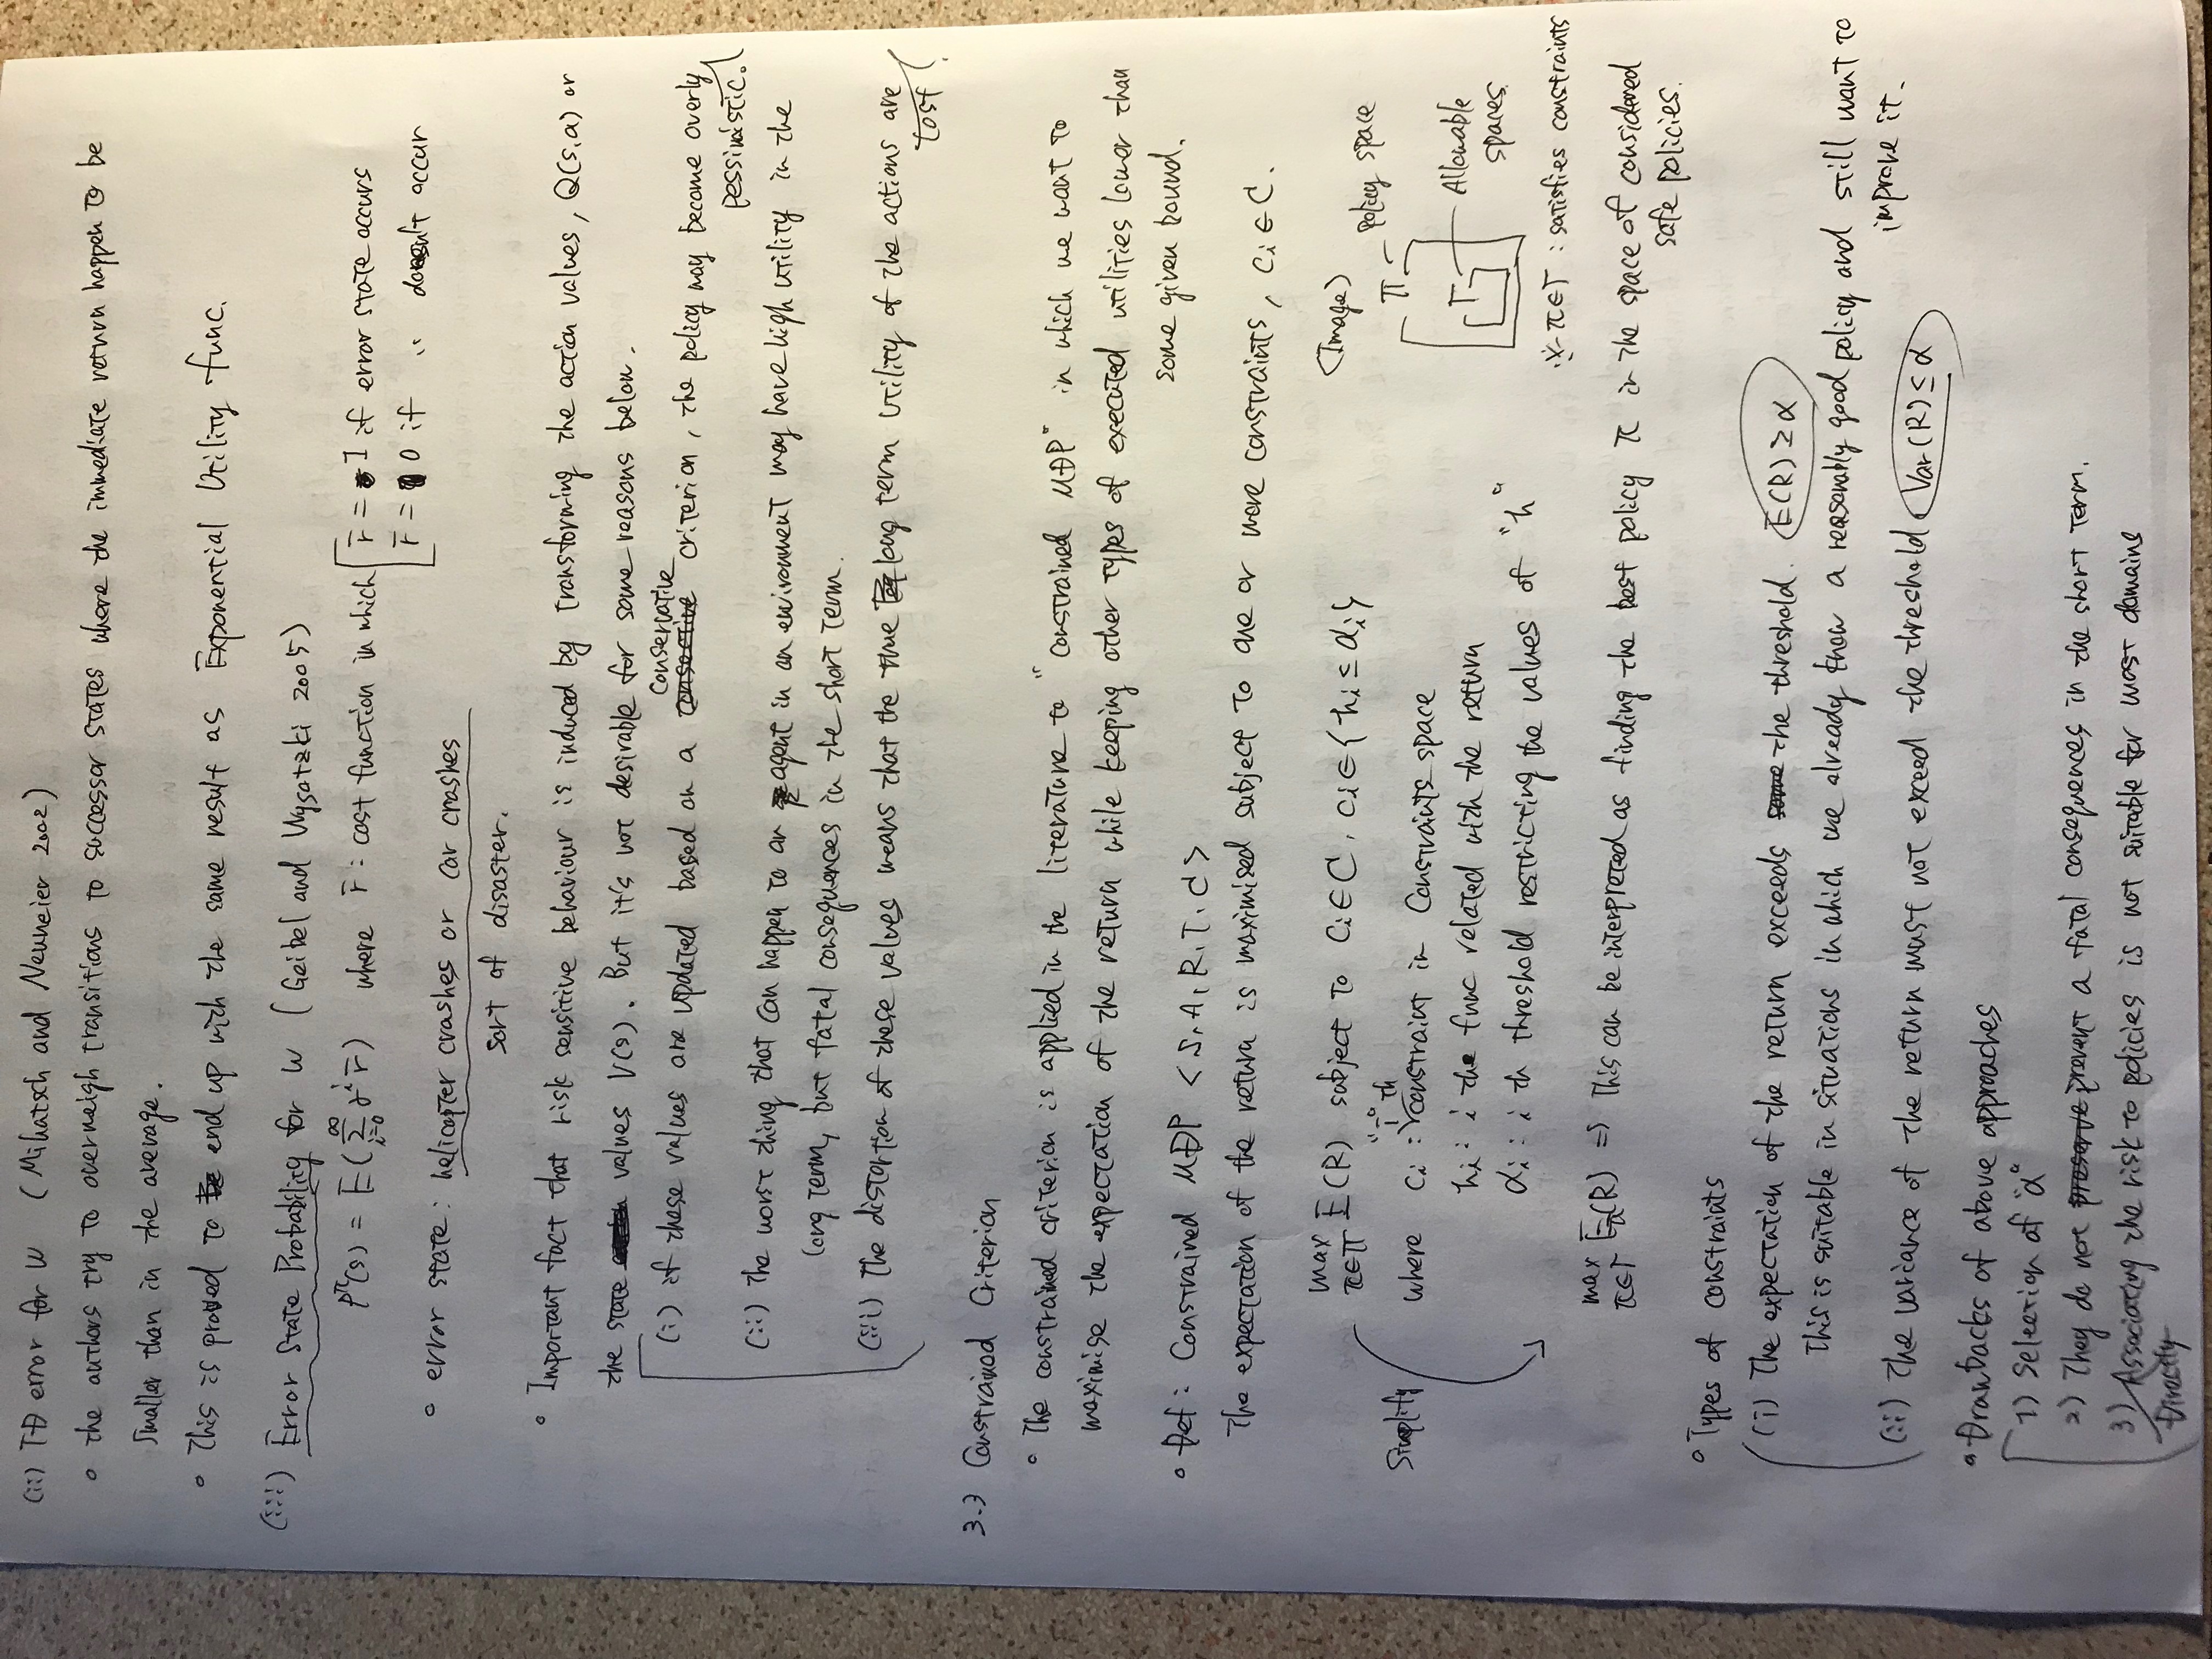 (ii) TD error for ω (Mihatsch and Neuneier 2002)
○ the authors try to overweigh transitions to successor states where the immediate return happen to be
smaller than in the average.
○ This is proved to end up with the same result as Exponential Utility func.
(iii) Error State Probability for ω (Geibel and Wysotzki 2005)
ρ^π(s) = E(Σ_{i=0}^{∞} γ^i r̄) where r̄ : cost function in which r̄ = 1 if error state occurs
r̄ = 0 if 〃 doesn't occur
○ error state : helicopter crashes or car crashes
sort of disaster.
○ Important fact that risk sensitive behaviour is induced by transforming the action values, Q(s,a) or
the state values V(s). But it's not desirable for some reasons below.
(i) if these values are updated based on a conservative criterion, the policy may become overly
pessimistic.
(ii) The worst thing that can happen to an agent in an environment may have high utility in the
long term, but fatal consequences in the short term.
(iii) The distortion of these values means that the true long term utility of the actions are
lost!
3.3 Constrained Criterion
○ The constrained criterion is applied in the literature to "constrained MDP" in which we want to
maximise the expectation of the return while keeping other types of executed utilities lower than
some given bound.
○ Def : Constrained MDP <S, A, R, T, C>
The expectation of the return is maximised subject to one or more constraints, ci ∈ C.
max_{π∈Π} E(R) subject to ci ∈ C, ci ∈ {hi ≤ αi}
(Image)
Π policy space
Simplify
where ci : "i"th constraint in Constraints space
Γ Allowable
spaces.
hi : i the func related with the return
αi : i th threshold restricting the values of "h"
※ π∈Γ : satisfies constraints
max_{π∈Γ} E_π(R) ⇒ This can be interpreted as finding the best policy π in the space of considered
safe policies.
○ Types of constraints
(i) The expectation of the return exceeds the threshold. E(R) ≥ α
This is suitable in situations in which we already know a reasonably good policy and still want to
improve it.
(ii) The variance of the return must not exceed the threshold Var(R) ≤ α
○ Drawbacks of above approaches
1) Selection of "α"
2) They do not prevent a fatal consequences in the short term.
3) Associating the risk to policies is not suitable for most domains
Directly